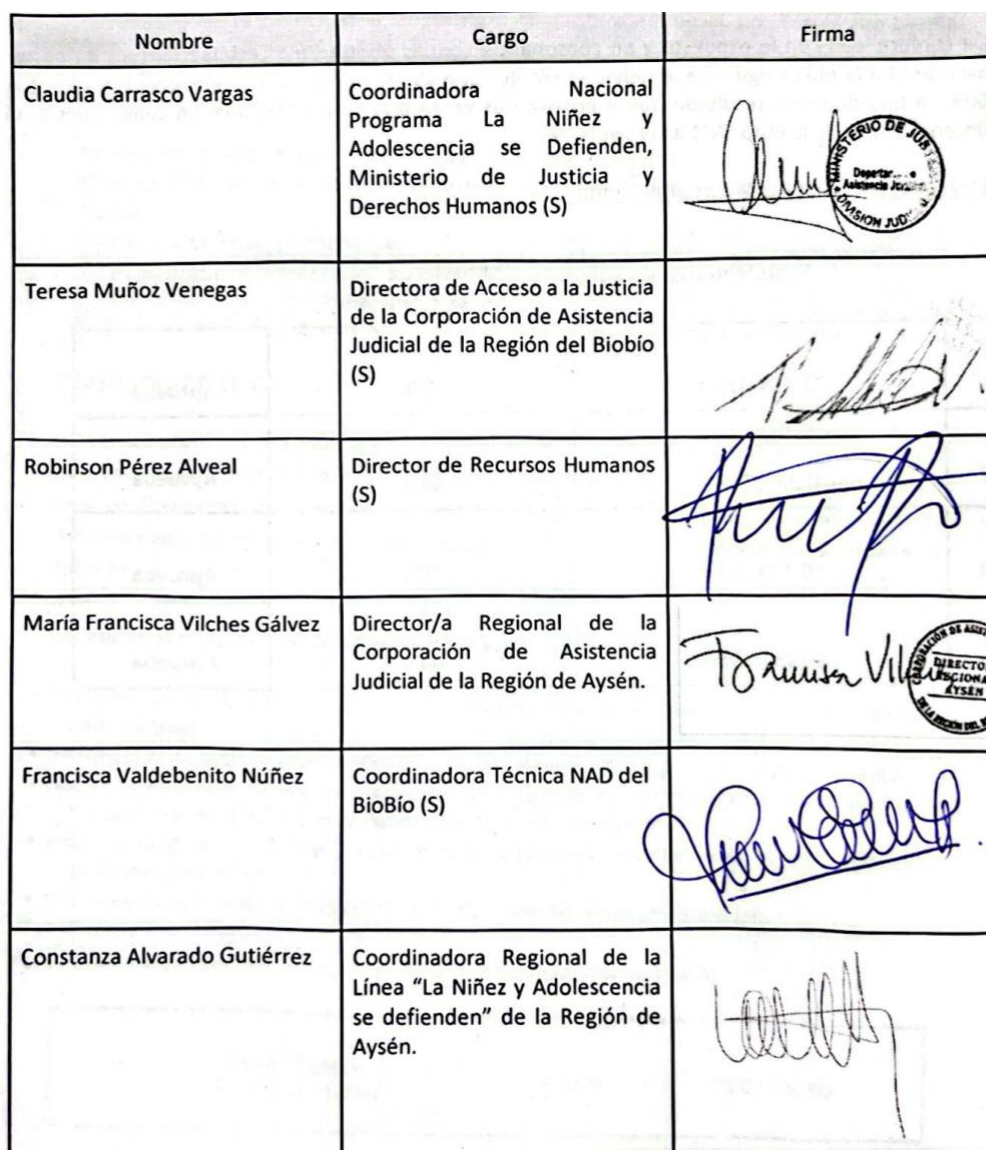 Nombre
Cargo
Firma
Claudia Carrasco Vargas
Coordinadora Nacional
Programa La Niñez y
Adolescencia se Defienden,
Ministerio de Justicia y
Derechos Humanos (S)
MINISTERIO DE JUS
Asistencia
DIVISION JUD
Teresa Muñoz Venegas
Directora de Acceso a la Justicia
de la Corporación de Asistencia
Judicial de la Región del Biobío
(S)
Robinson Pérez Alveal
Director de Recursos Humanos
(S)
María Francisca Vilches Gálvez
Director/a Regional de la
Corporación de Asistencia
Judicial de la Región de Aysén.
DIRECTO
AYSÉN
DE LA REGIÓN DEL
Francisca Valdebenito Núñez
Coordinadora Técnica NAD del
BioBío (S)
Constanza Alvarado Gutiérrez
Coordinadora Regional de la
Línea "La Niñez y Adolescencia
se defienden" de la Región de
Aysén.